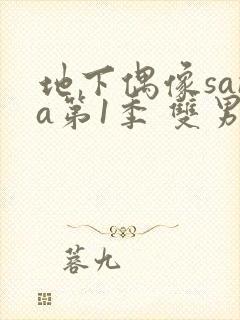 地下偶像sa
a第1季 雙男
蓉九